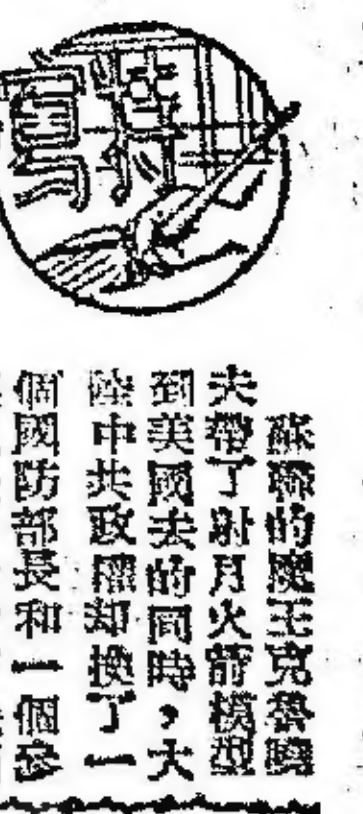 蘇聯的魔王克魯曉
夫帶了射月火箭模型
到美國去的同時，大
陸中共政權却換了一
個國防部長和一個參